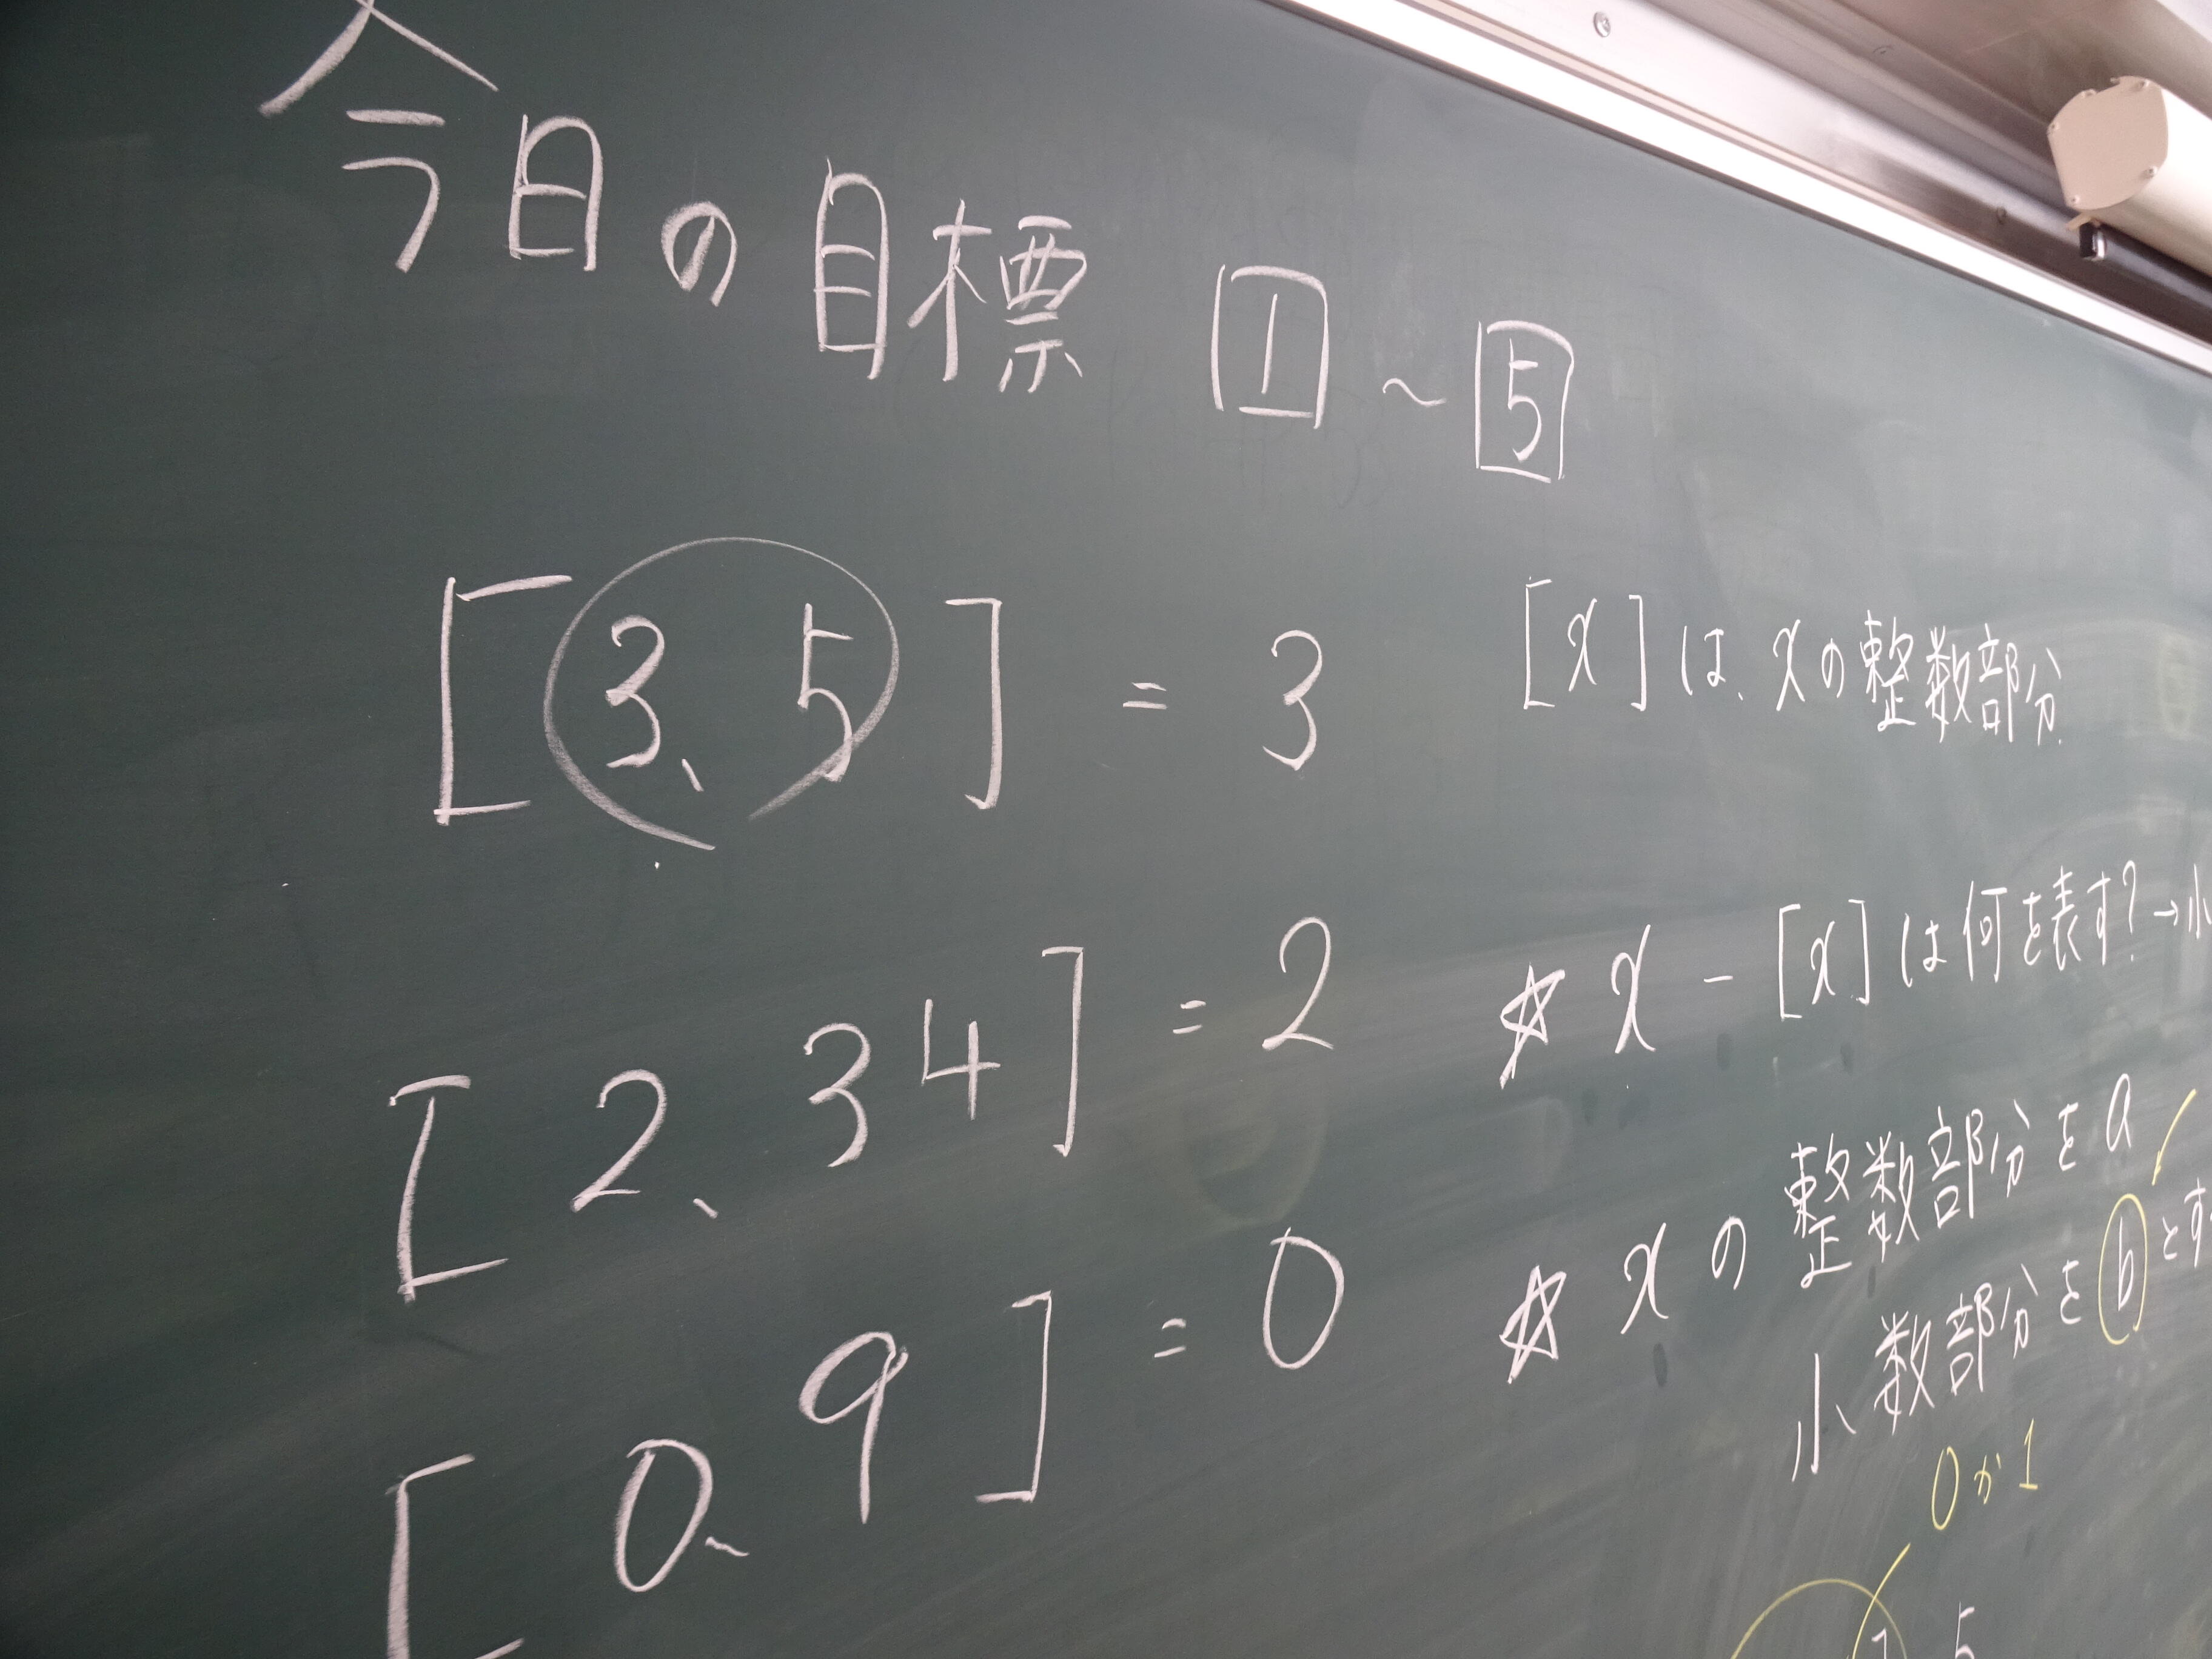 今日の目標 1 ~ 5
[3、5] = 3
[2、34] = 2
[0、9] = 0
[x] は、xの整数部分
☆ x - [x] は何を表す? → 小
☆ x の 整数部分を a
小数部分を b とす
0か1
5